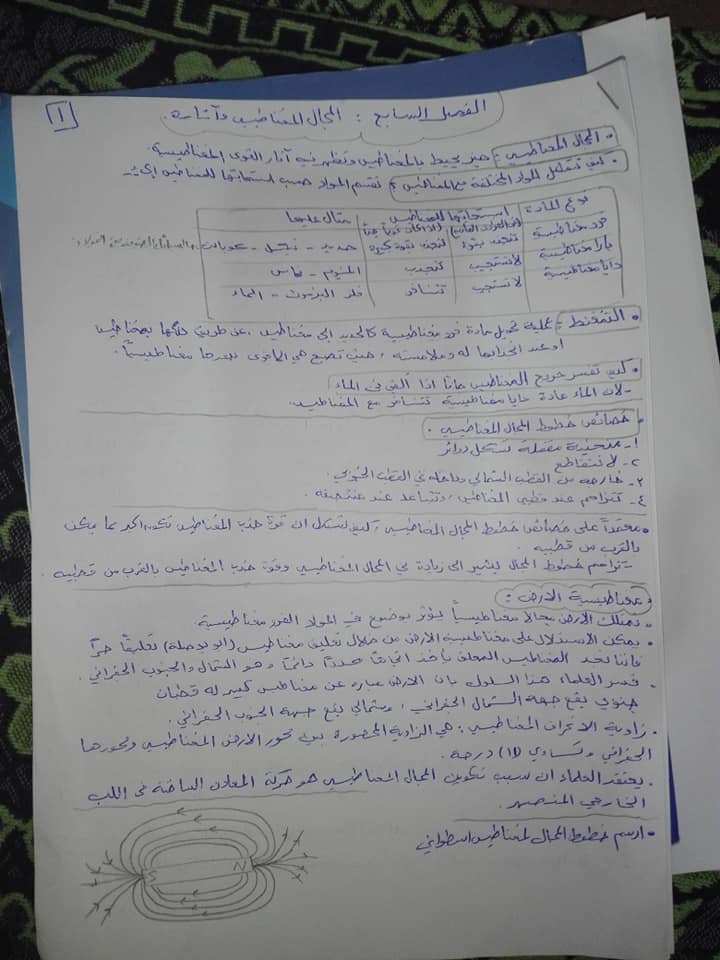 ١
الفصل السابع : المجال المغناطيسي وآثاره.
• المجال المغناطيسي : حيز يحيط بالمغناطيس وتظهر فيه آثار القوى المغناطيسية.
• كيف تتفاعل المواد المختلفة مع المغناطيس ؟ تقسم المواد حسب استجابتها للمغناطيس إلى :-
نوع المادة | استجابتها للمغناطيس | مثال عليها
فرومغناطيسية | تنجذب بقوة | تنجذب بقوة كبيرة | حديد - نيكل - كوبالت
بارامغناطيسية | لا تستجيب | تنجذب | المنيوم - نحاس
دايا مغناطيسية | لا تستجيب | تتنافر | فلز البزموث - الماء
• التمغنط : عملية تحويل مادة فرومغناطيسية كالحديد إلى مغناطيس ، عن طريق دلكها بمغناطيس
أو عند انجذابها له وملامسته ، حيث تصبح هي الأخرى بعدها مغناطيساً.
• كيف تفسر خروج المغناطيس جافا اذا ألقي في الماء
- لان الماء مادة دايا مغناطيسية تتنافر مع المغناطيس.
• خصائص خطوط المجال المغناطيسي .
١- منحنية مقفلة تشكل دوائر
٢- لا تتقاطع
٣- خارجه من القطب الشمالي وداخله في القطب الجنوبي.
٤- تتزاحم عند قطبي المغناطيس ، وتتباعد عند منتصفه .
• معتمداً على خصائص خطوط المجال المغناطيسي ، كيف تستدل ان قوة جذب المغناطيس تكون اكبر ما يمكن
بالقرب من قطبيه .
- تزاحم خطوط المجال يشير الى زيادة في المجال المغناطيسي وقوة جذب المغناطيس بالقرب من قطبيه .
• مغناطيسية الارض :
• تمتلك الأرض مجالا مغناطيسياً يؤثر بوضوح في المواد الفرومغناطيسية.
• يمكن الاستدلال على مغناطيسية الارض من خلال تعليق مغناطيس (او بوصلة) تعليقاً حراً
فإننا نجد المغناطيس المعلق يأخذ اتجاهاً محدداً دائماً وهو الشمال والجنوب الجغرافي .
• فسر العلماء هذا السلوك بان الارض عباره عن مغناطيس كبير له قطبان
جنوبي يقع جهة الشمال الجغرافي ، وشمالي يقع جهة الجنوب الجغرافي .
• زاوية الانحراف المغناطيسي : هي الزاوية المحصورة بين محور الارض المغناطيسي ومحورها
الجغرافي وتساوي (١١) درجة .
• يعتقد العلماء ان سبب تكوين المجال المغناطيسي هو حركة المعادن الساخنة في اللب
الخارجي المنصهر .
• ارسم خطوط المجال لمغناطيس اسطواني
S N